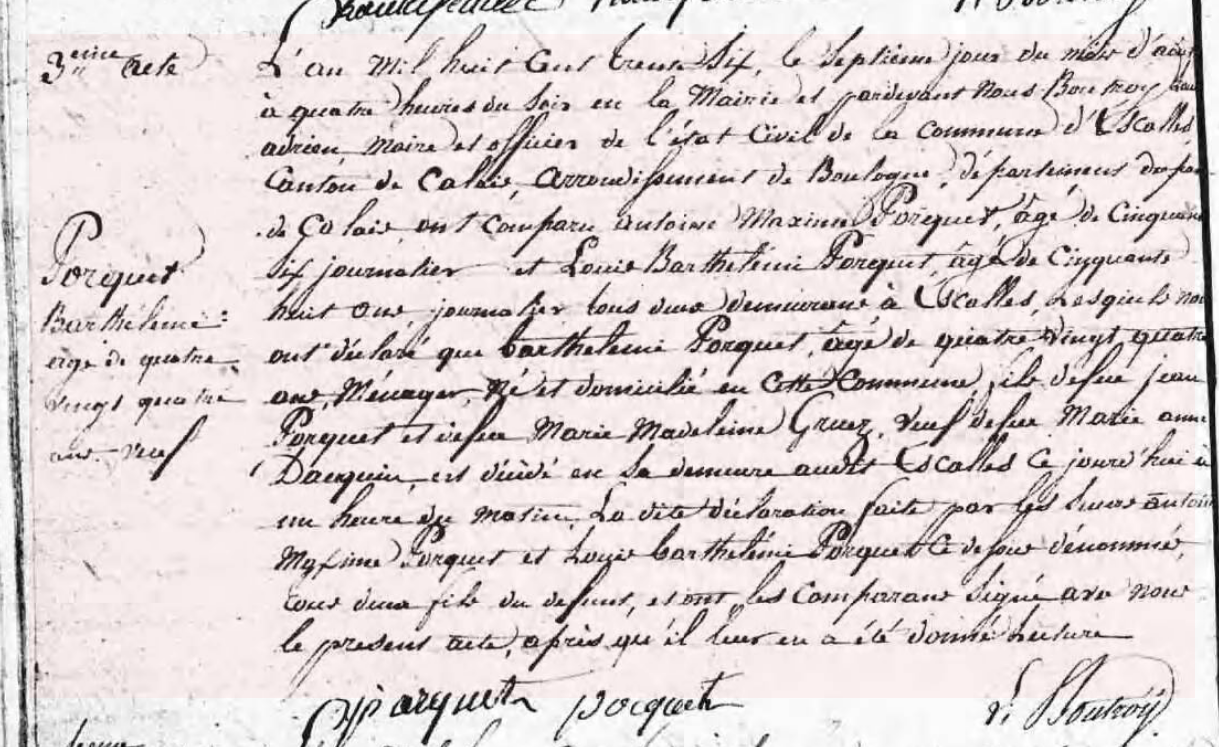 3eme acte
Porquet
Barthélemi
agé de quatre
vingt quatre
ans. veuf
L'an mil huit cent trente six, le septieme jour du mois d'
à quatre heures du soir en la Mairie et pardevant Nous Boutroy
adrien, maire et officier de l'état Civil de la Commune d'Escalles
Canton de Calais, arrondissement de Boulogne, département du pas
de Calais, ont comparu antoine Maxime Porquet, âgé de Cinquante
six journalier et Louis Barthelemi Porquet, âgé de Cinquante
huit ans, journalier tous deux demeurans à Escalles, Lesquels nous
ont déclaré que barthelemi Porquet, âgé de quatre vingt quatre
ans, Ménager, Né et domicilié en cette commune, fils defeu jean
Porquet et defeu Marie Madeleine Gruez, veuf defeu Marie anne
Dauquin, est décédé en sa demeure audit Escalles ce jourd'hui à
un heure du matin. La dite déclaration faite par les sieurs antoine
Maxime Porquet et Louis barthelémi Porquet Ce desous dénommés,
tous deux fils du defunt, et ont les Comparans signé avec nous
le present acte, après qu'il leur en a été donné lecture
porquet
Boutroy